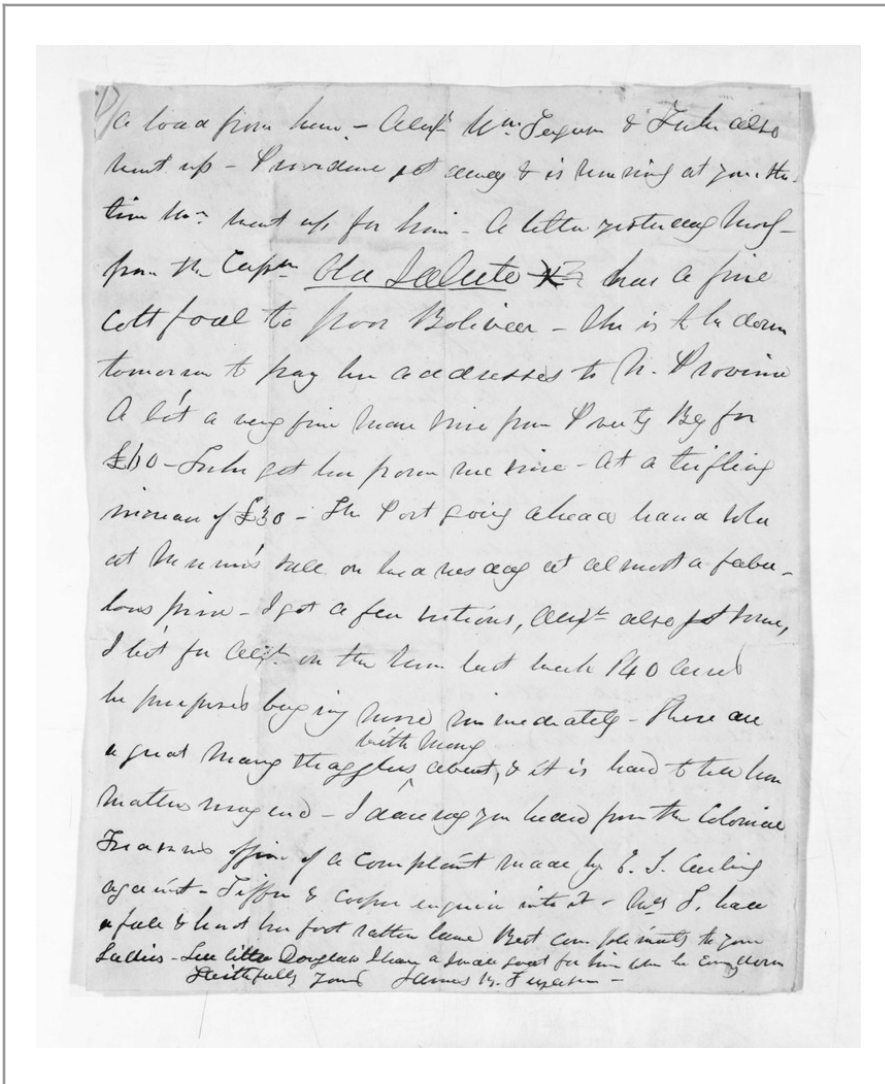 a load from here. - Alexr Wm. Ferguson & Fuhr also
went up - Providence got away & is running at
time Wm. went up for him - A letter yesterday Morng -
from the Captn Old Salute has a fine
colt foal to poor Boliver - She is to be down
tomorrow to pay her addresses to N. Province
A bot a very fine mare from Poverty Bay for
£60 - got her from me since - at a trifling
increase of £30 - The Port going ahead land sold
at sale on Wednesday at almost a fabu-
lous price - I got a few sections, Alexr also got some,
I bot for Alexr on the last week 140 and
he proposes buying more immediately - There are
a great many stragglers with money about, & it is hard to tell how
matters may end - I daresay you heard from the Colonial
Treasurers office of a complaint made by E. S. Curling
against - Tiffen & Cooper enquire into it - Mrs F. had
a fall & hurt her foot rather lame Best compliments to your
Ladies - Tell little Douglas I have a goat for him when he comes down
Faithfully Yours James B. Ferguson -